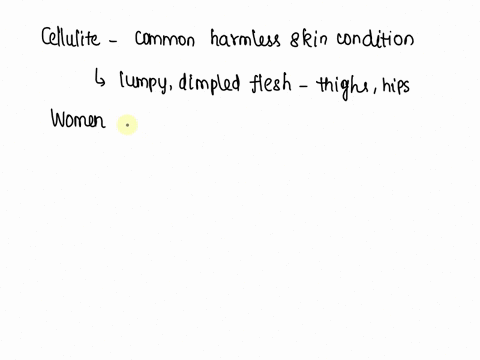 Cellulite - common harmless skin condition
↳ lumpy, dimpled flesh - thighs, hips
Women